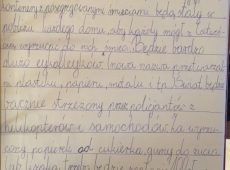 kontenery z posegregowanymi śmieciami będą stały w
pobliżu każdego domu, aby każdy mógł z łatwoś-
cią wyrzucić do nich śmieci. Będzie bardzo
dużo (nowa nazwa przetwarzal-
ni plastiku, papieru, metalu i tp. Świat będzie
racznie strzeżony przez policjantów z
helikopterów i samochodów. Za wyrzu-
cony papierek od cukierka, gumy do żucia
lub